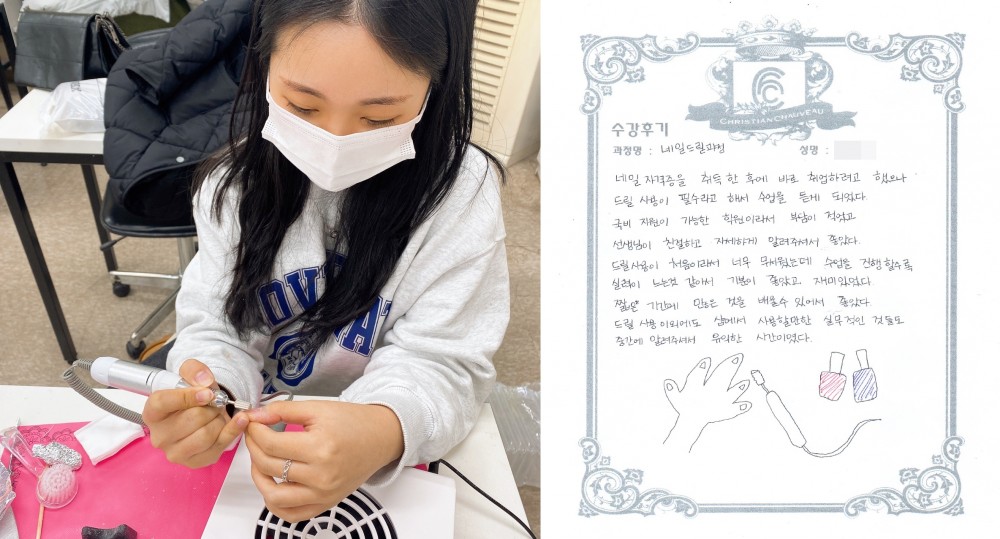 CHRISTIAN CHAUVEAU
수강후기
과정명 : 네일드릴과정 성명 :
네일 자격증을 취득한 후에 바로 취업하려고 했으나
드릴 사용이 필수라고 해서 수업을 듣게 되었다.
국비 지원이 가능한 학원이라서 부담이 적었고
선생님이 친절하고 자세하게 알려주셔서 좋았다.
드릴사용이 처음이라서 너무 무서웠는데 수업을 진행할수록
실력이 느는것 같아서 기분이 좋았고 재미있었다
짧은 기간에 많은 것을 배울수 있어서 좋았다
드릴 사용 이외에도 샵에서 사용할만한 실무적인 것들도
중간에 알려주셔서 유익한 시간이었다.